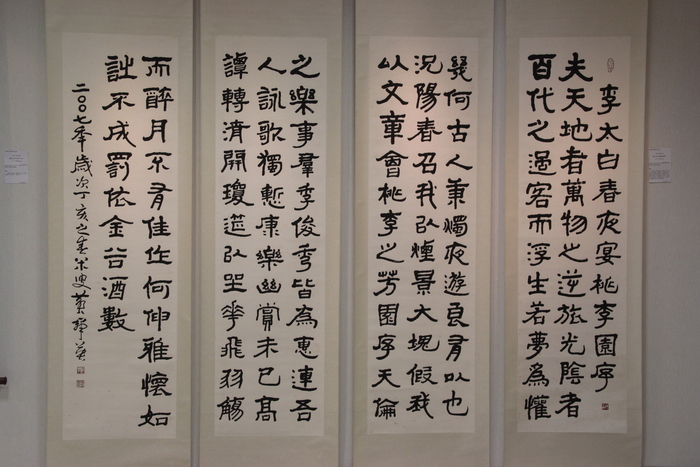 李太白春夜宴桃李園序
夫天地者萬物之逆旅光陰者
百代之過客而浮生若夢為懽
幾何古人秉燭夜遊良有以也
況陽春召我以煙景大塊假我
以文章會桃李之芳園序天倫
之樂事羣季俊秀皆為惠連吾
人詠歌獨慙康樂幽賞未已高
譚轉清開瓊筵以坐花飛羽觴
而醉月不有佳作何伸雅懷如
詩不成罰依金谷酒數
二〇〇七年歲次丁亥之春